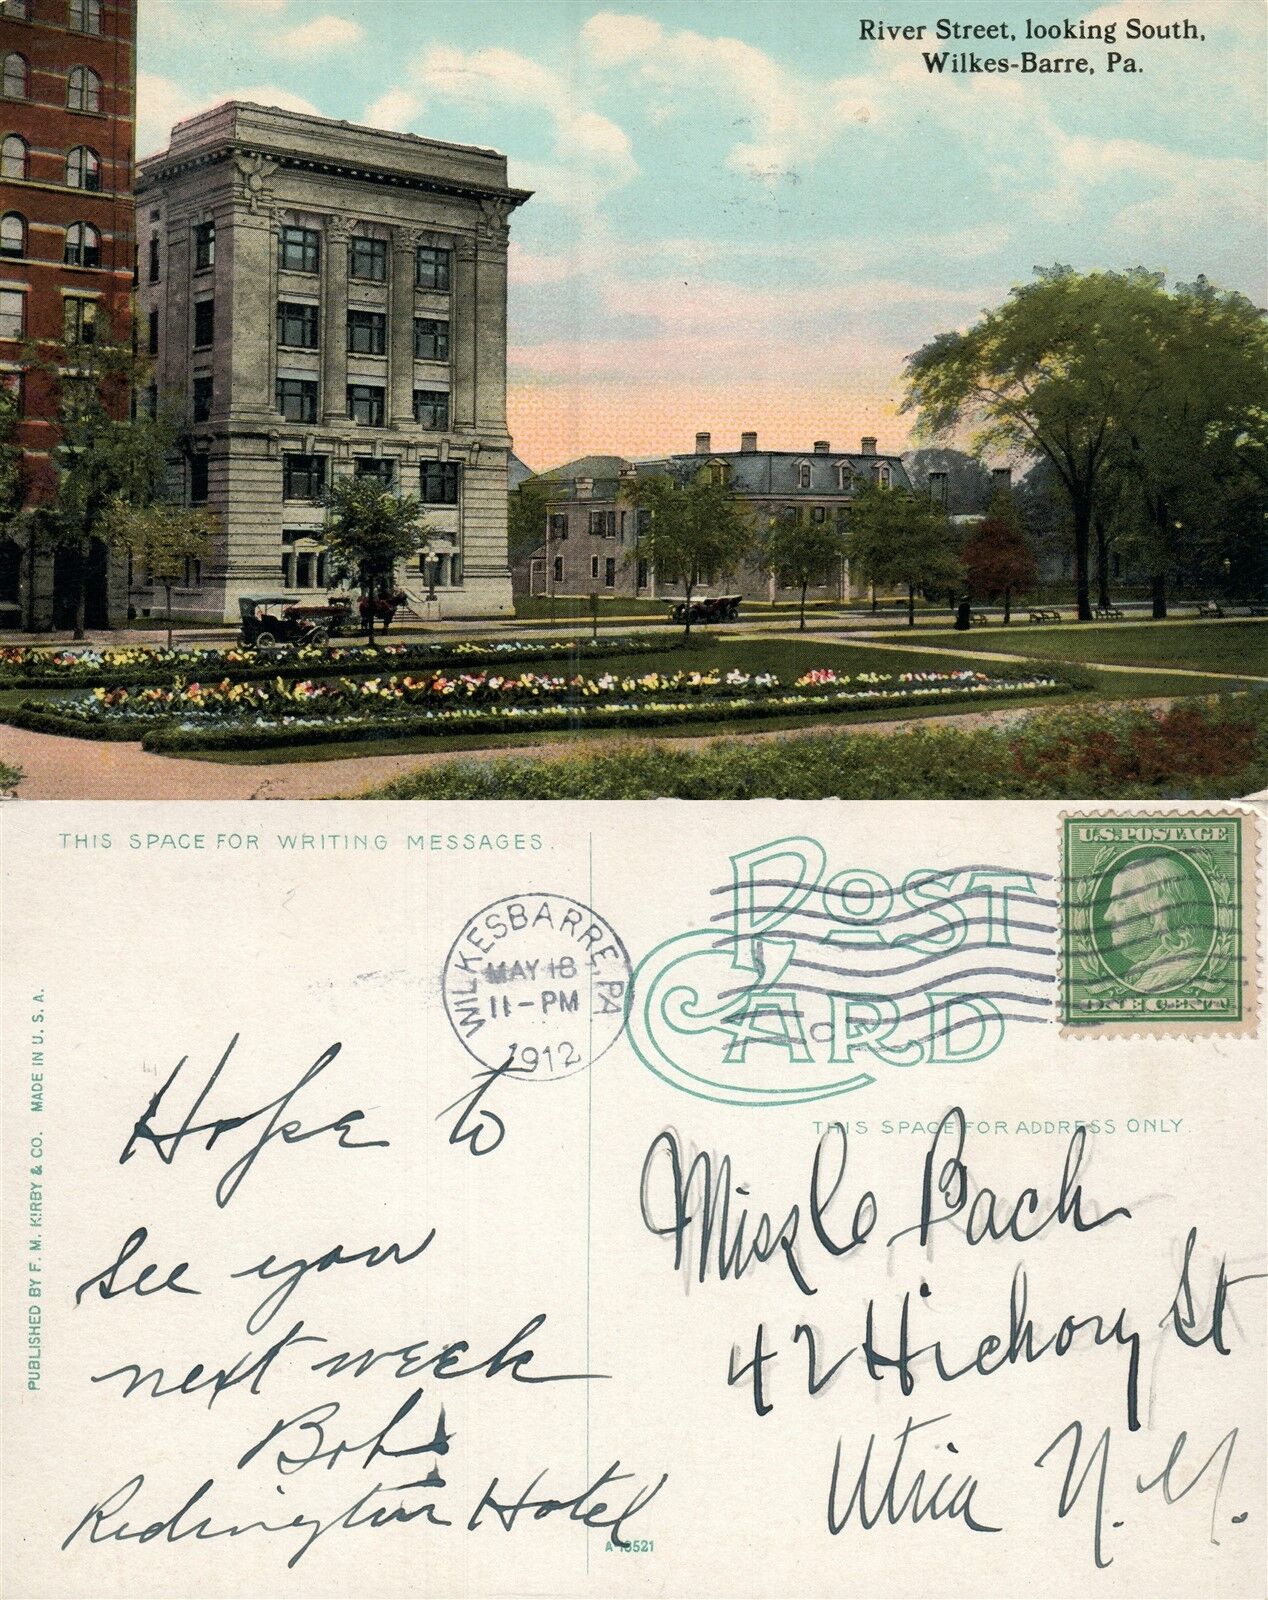 River Street, looking South,
Wilkes-Barre, Pa.
THIS SPACE FOR WRITING MESSAGES.
POST
CARD
U.S. POSTAGE
ONE CENT
WILKESBARRE, PA
MAY 18
11-PM
1912
THIS SPACE FOR ADDRESS ONLY.
PUBLISHED BY F. M. KIRBY & CO. MADE IN U. S. A.
Hope to
see you
next week
Bob
Redington Hotel
Miss C Bach
42 Hickory St
Utica N.Y.
A-13521